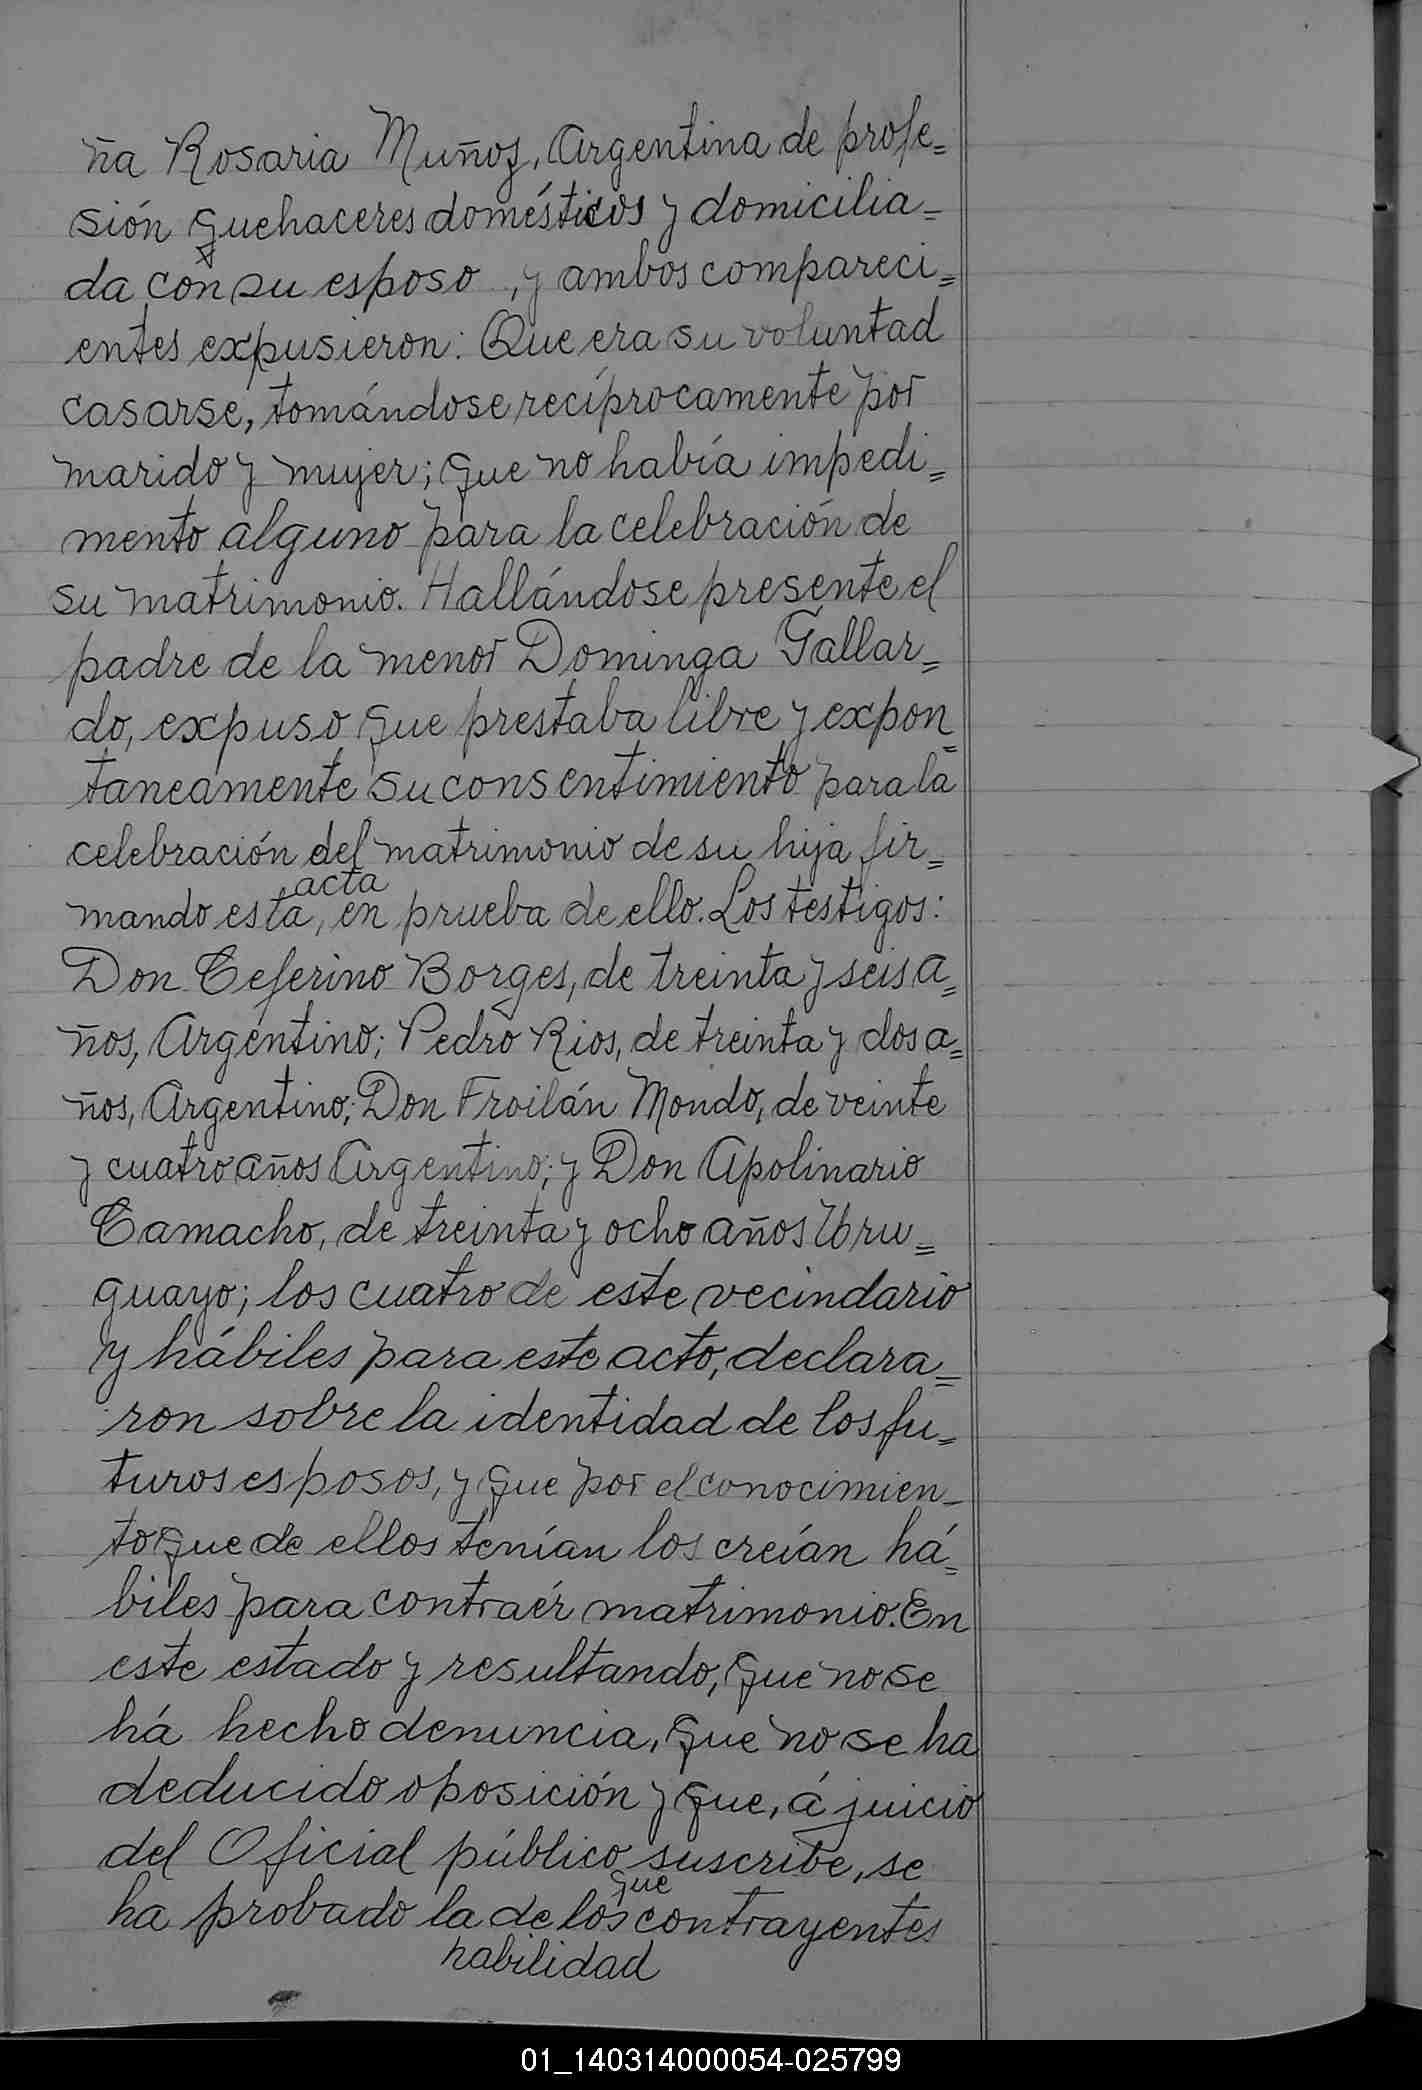 ña Rosaria Muñoz, Argentina de profe=
sión quehaceres domésticos y domicilia=
da con su esposo, y ambos compareci=
entes expusieron: Que era su voluntad
casarse, tomándose recíprocamente por
marido y mujer; que no había impedi=
mento alguno para la celebración de
su matrimonio. Hallándose presente el
padre de la menor Dominga Gallar=
do, expuso que prestaba libre y expon=
taneamente su consentimiento para la
celebración del matrimonio de su hija fir=
acta
mando esta, en prueba de ello. Los testigos:
Don Ceferino Borges, de treinta y seis a=
ños, Argentino; Pedro Rios, de treinta y dos a=
ños, Argentino; Don Froilán Mondo, de veinte
y cuatro años Argentino; y Don Apolinario
Camacho, de treinta y ocho años Uru=
guayo; los cuatro de este vecindario
y hábiles para este acto, declara=
ron sobre la identidad de los fu=
turos esposos, y que por el conocimien=
to que de ellos tenían los creían há=
biles para contraér matrimonio. En
este estado y resultando, que no se
há hecho denuncia, que no se ha
deducido oposición y que, á juicio
del Oficial público suscribe, se
que
ha probado la de los contrayentes
habilidad
01_140314000054-025799